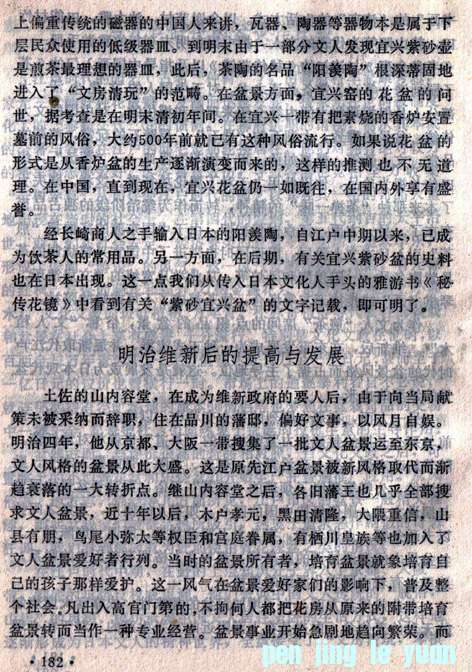 上偏重传统的磁器的中国人来讲，瓦器、陶器等器物本是属于下
层民众使用的低级器皿。到明末由于一部分文人发现宜兴紫砂壶
是煎茶最理想的器皿，此后，茶陶的名品“阳羡陶”根深蒂固地
进入了“文房清玩”的范畴。在盆景方面，宜兴窑的花盆的问
世，据考查是在明末清初年间。在宜兴一带有把素烧的香炉安置
墓前的风俗，大约500年前就已有这种风俗流行。如果说花盆的
形式是从香炉盆的生产逐渐演变而来的，这样的推测也不无道
理。在中国，直到现在，宜兴花盆仍一如既往，在国内外享有盛
誉。
经长崎商人之手输入日本的阳羡陶，自江户中期以来，已成
为饮茶人的常用品。另一方面，在后期，有关宜兴紫砂盆的史料
也在日本出现。这一点我们从传入日本文化人手头的雅游书《秘
传花镜》中看到有关“紫砂宜兴盆”的文字记载，即可明了。
明治维新后的提高与发展
土佐的山内容堂，在成为维新政府的要人后，由于向当局献
策未被采纳而辞职，住在品川的藩邸，偏好文事，以风月自娱。
明治四年，他从京都、大阪一带搜集了一批文人盆景运至东京，
文人风格的盆景从此大盛。这是原先江户盆景被新风格取代而渐
趋衰落的一大转折点。继山内容堂之后，各旧藩王也几乎全部搜
求文人盆景，近十年以后，木户孝元，黑田清隆，大隈重信，山
县有朋，鸟尾小弥太等权臣和宫庭眷属，有栖川皇族等也加入了
文人盆景爱好者行列。当时的盆景所有者，培育盆景就象培育自
己的孩子那样爱护。这一风气在盆景爱好家们的影响下，普及整
个社会。凡出入高官门第的，不拘何人都把花房从原来的附带培育
盆景转而当作一种专业经营。盆景事业开始急剧地趋向繁荣。而
·182·
pen jing le yuan